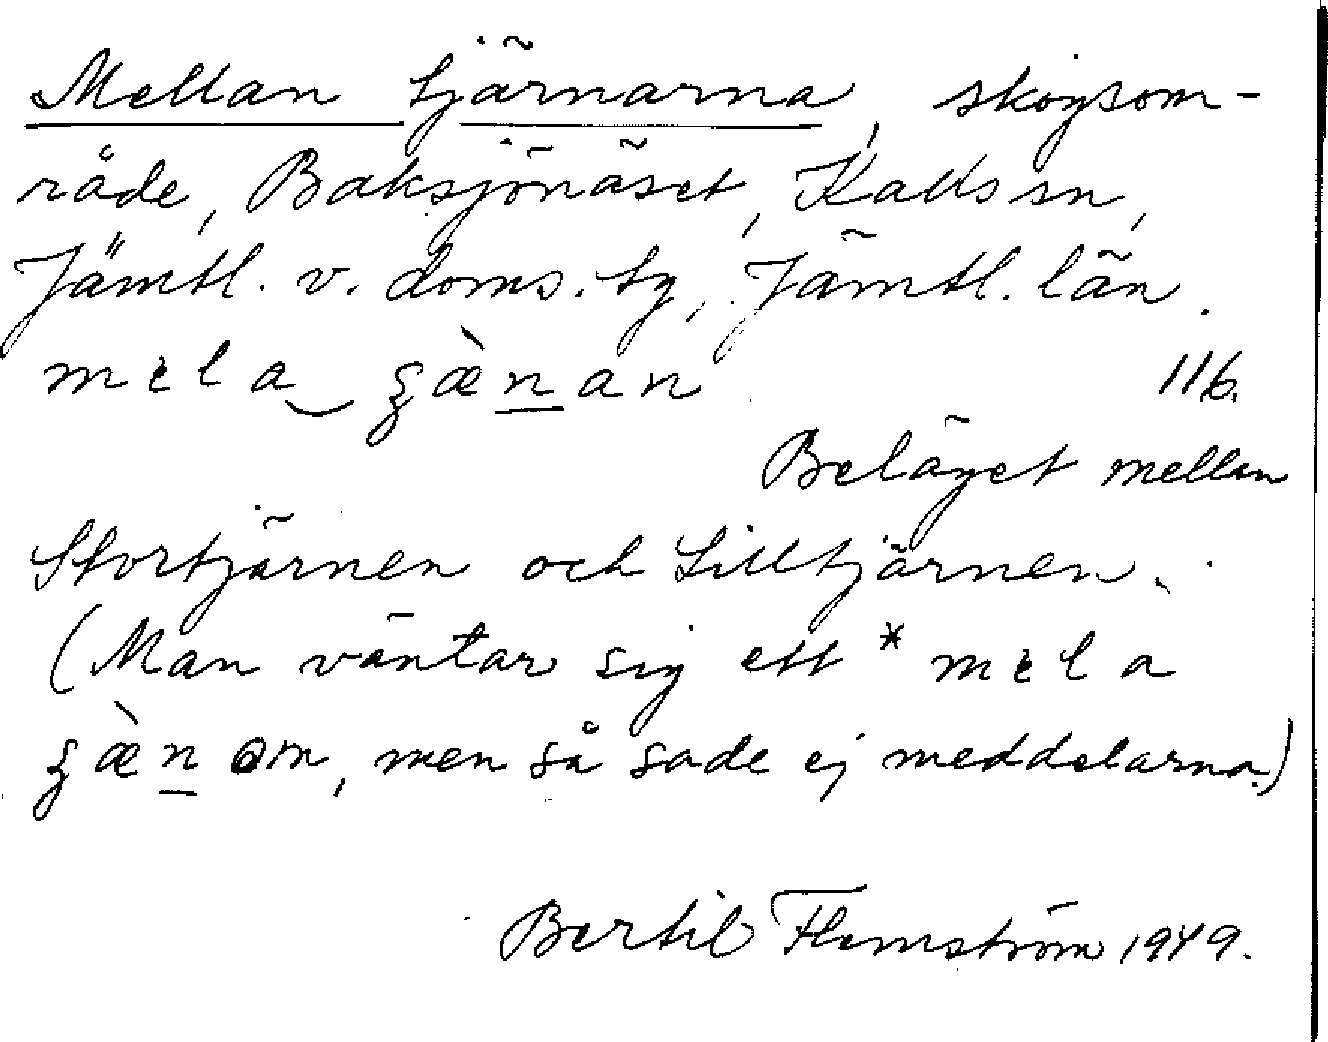 Mellan tjärnarna, skogsom-
råde, Baksjönäset, Kalls sn,
Jämtl. v. doms. tg, Jämtl. län.
mɛla‿ʒæ̀n̲an 116.
Beläget mellan
Stortjärnen och Lilltjärnen.
(Man väntar sig ett *mɛla
ʒæ̀n̲om, men så sade ej meddelarna.)
Bertil Flemström 1949.